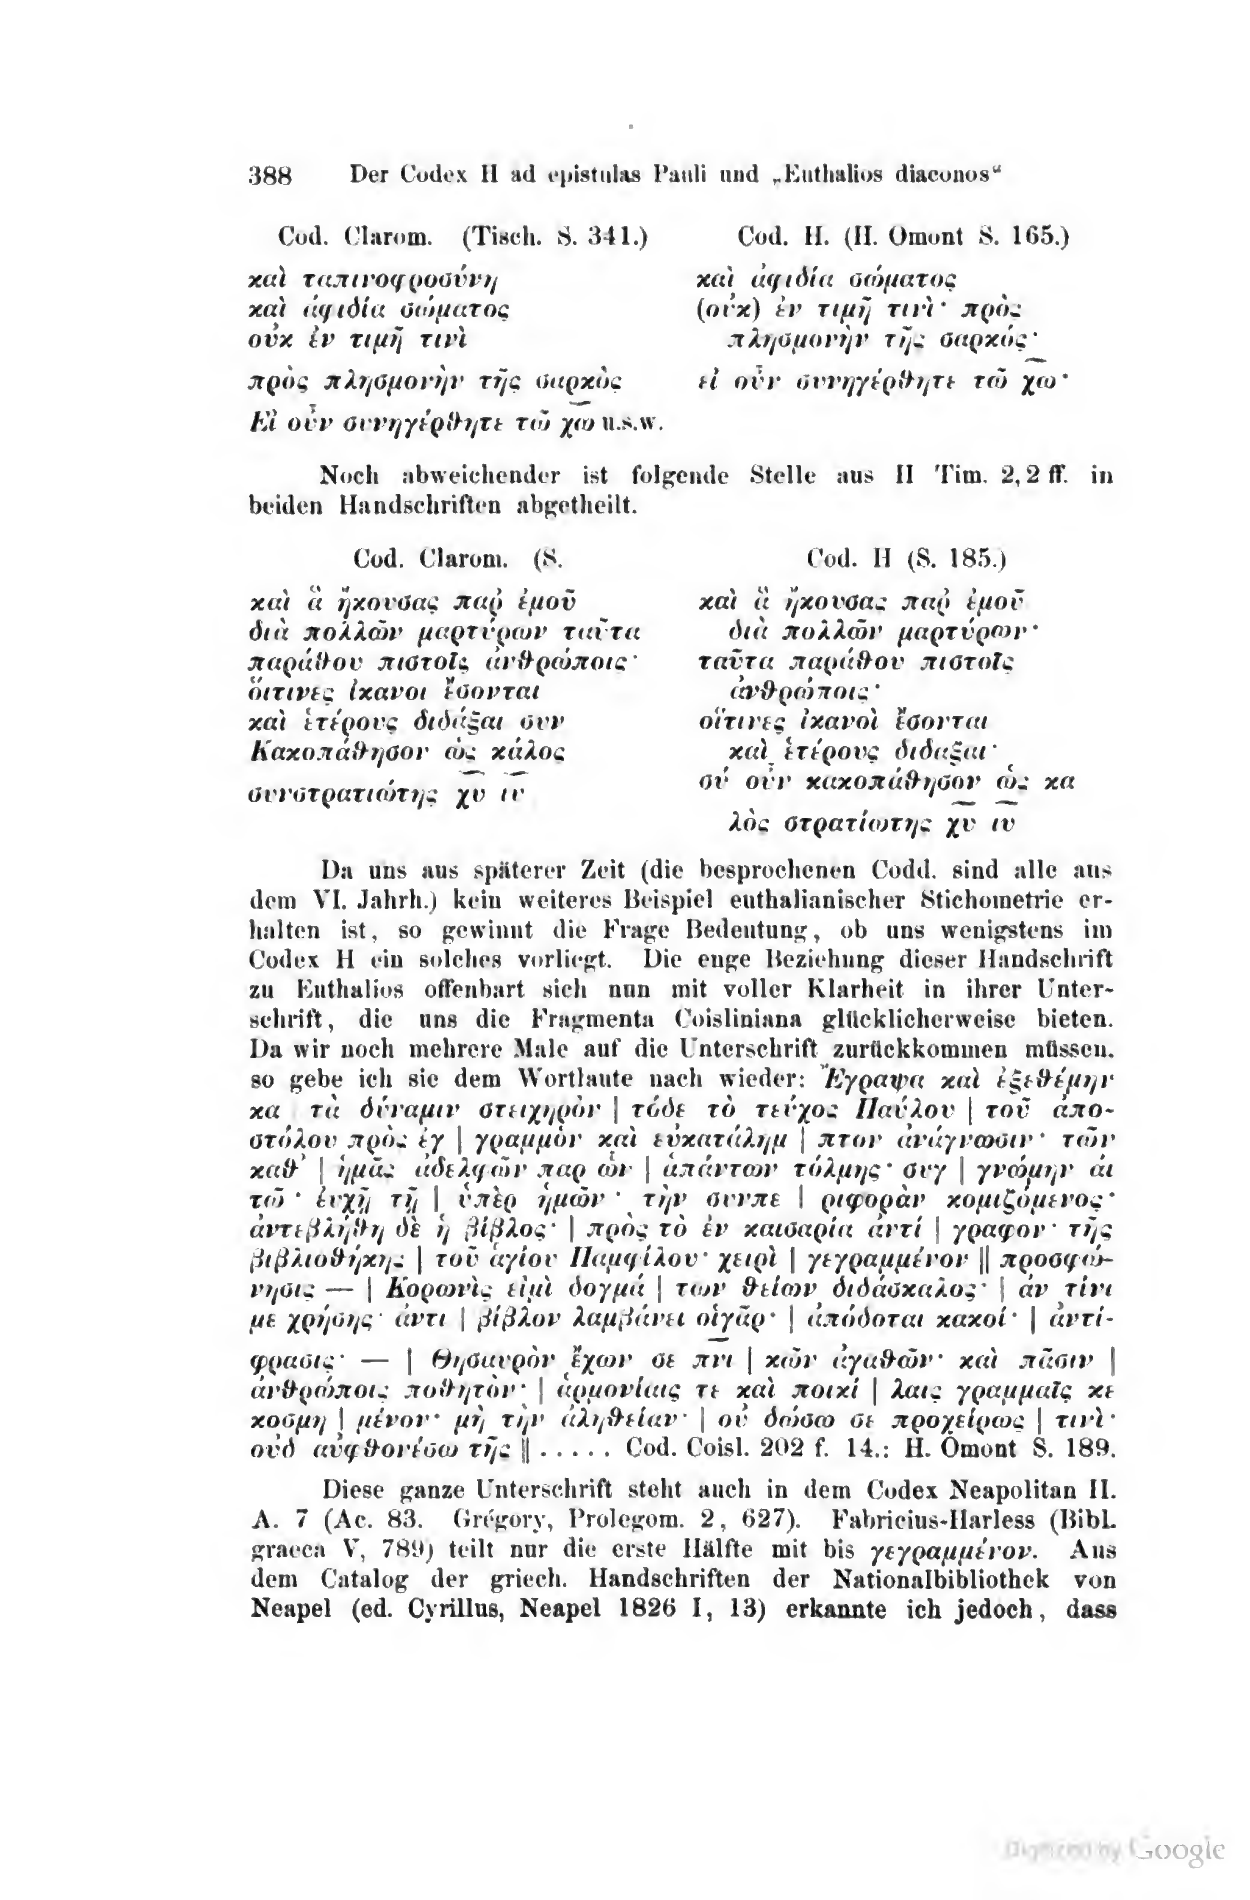 388 Der Codex H ad epistulas Pauli und „Euthalios diaconos“
Cod. Clarom. (Tisch. S. 341.)
καὶ ταπινοφροσύνη
καὶ ἀφιδία σώματος
οὐκ ἐν τιμῇ τινὶ
πρὸς πλησμονὴν τῆς σαρκὸς
Εἰ οὖν συνηγέρθητε τῶ χω̅ u.s.w.
Cod. H. (H. Omont S. 165.)
καὶ ἀφιδία σώματος
(οὐκ) ἐν τιμῇ τινὶ· πρὸς
πλησμονὴν τῆς σαρκός·
εἰ οὖν συνηγέρθητε τῶ χω̅·
Noch abweichender ist folgende Stelle aus II Tim. 2,2 ff. in
beiden Handschriften abgetheilt.
Cod. Clarom. (S.
καὶ ἃ ἤκουσας παρ ἐμοῦ
διὰ πολλῶν μαρτύρων ταῦτα
παράθου πιστοῖς ἀνθρώποις·
ὅιτινες ἱκανοι ἔσονται
καὶ ἑτέρους διδάξαι συν
Κακοπάθησον ὡς κάλος
συνστρατιώτης χυ̅ ιυ̅
Cod. H (S. 185.)
καὶ ἃ ἤκουσας παρ ἐμοῦ
διὰ πολλῶν μαρτύρων·
ταῦτα παράθου πιστοῖς
ἀνθρώποις·
οἵτινες ἱκανοὶ ἔσονται
καὶ ἑτέρους διδαξαι·
σύ οὐν κακοπάθησον ὡς κα
λὸς στρατίωτης χυ̅ ιυ̅
Da uns aus späterer Zeit (die besprochenen Codd. sind alle aus
dem VI. Jahrh.) kein weiteres Beispiel euthalianischer Stichometrie er-
halten ist, so gewinnt die Frage Bedeutung, ob uns wenigstens im
Codex H ein solches vorliegt. Die enge Beziehung dieser Handschrift
zu Euthalios offenbart sich nun mit voller Klarheit in ihrer Unter-
schrift, die uns die Fragmenta Coisliniana glücklicherweise bieten.
Da wir noch mehrere Male auf die Unterschrift zurückkommen müssen,
so gebe ich sie dem Wortlaute nach wieder: Ἔγραψα καὶ ἐξεθέμην
κα τὰ δύναμιν στειχηρὸν | τόδε τὸ τεύχος Παύλου | τοῦ ἀπο-
στόλου πρὸς ἐγ | γραμμὸν καὶ εὐκατάλημ | πτον ἀνάγνωσιν· τῶν
καθ᾽ | ἡμᾶς ἀδελφῶν παρ ὧν | ἁπάντων τόλμης· συγ | γνώμην αἰ
τῶ· ἐυχῇ τῇ | ὑπὲρ ἡμῶν· τὴν συνπε | ριφορὰν κομιζόμενος·
ἀντεβλήθη δὲ ἡ βίβλος· | πρὸς τὸ ἐν καισαρία ἀντί | γραφον· τῆς
βιβλιοθήκης | τοῦ ἁγίου Παμφίλου· χειρὶ | γεγραμμένον ‖ προσφώ-
νησις — | Κορωνὶς εἰμὶ δογμά | των θείων διδάσκαλος· | ἀν τίνι
με χρήσης· ἀντι | βίβλον λαμβάνει οἱγᾶρ· | ἀπόδοται κακοί· | ἀντί-
φρασις· — | Θησαυρὸν ἔχων σε πνι̅ | κῶν ἀγαθῶν· καὶ πᾶσιν |
ἀνθρώποις ποθητὸν· | ἁρμονίαις τε καὶ ποικί | λαις γραμμαῖς κε
κοσμη | μένον· μὴ τὴν ἀληθείαν· | οὐ δώσω σε προχείρως | τινὶ·
οὐδ αὐφθονέσω τῆς ‖ ..... Cod. Coisl. 202 f. 14.: H. Omont S. 189.
Diese ganze Unterschrift steht auch in dem Codex Neapolitan II.
A. 7 (Ac. 83. Grégory, Prolegom. 2, 627). Fabricius-Harless (Bibl.
graeca V, 789) teilt nur die erste Hälfte mit bis γεγραμμένον. Aus
dem Catalog der griech. Handschriften der Nationalbibliothek von
Neapel (ed. Cyrillus, Neapel 1826 I, 13) erkannte ich jedoch, dass
Digitized by Google